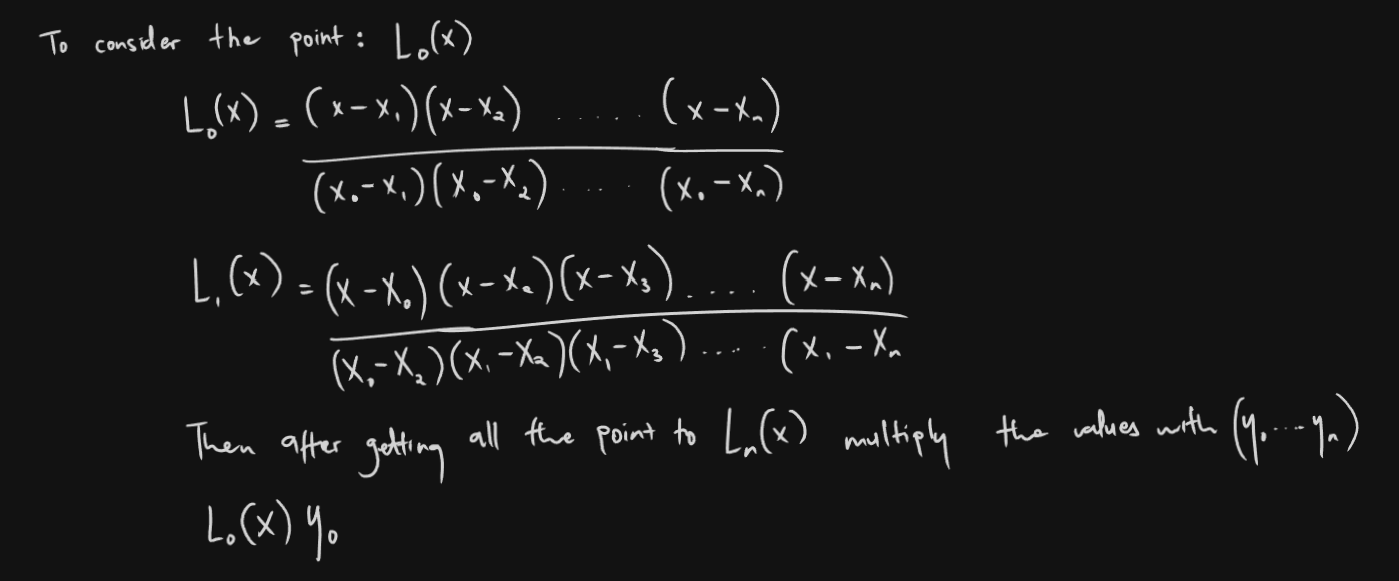 To consider the point: L₀(x)
L₀(x) = (x-x₁)(x-x₂) ...... (x-xₙ)
(x₀-x₁)(x₀-x₂) ..... (x₀-xₙ)
L₁(x) = (x-x₀)(x-x₂)(x-x₃) ..... (x-xₙ)
(x₀-x₂)(x₁-x₂)(x₁-x₃) ..... (x₁-xₙ
Then after getting all the point to Lₙ(x) multiply the values with (y₀...yₙ)
L₀(x) y₀